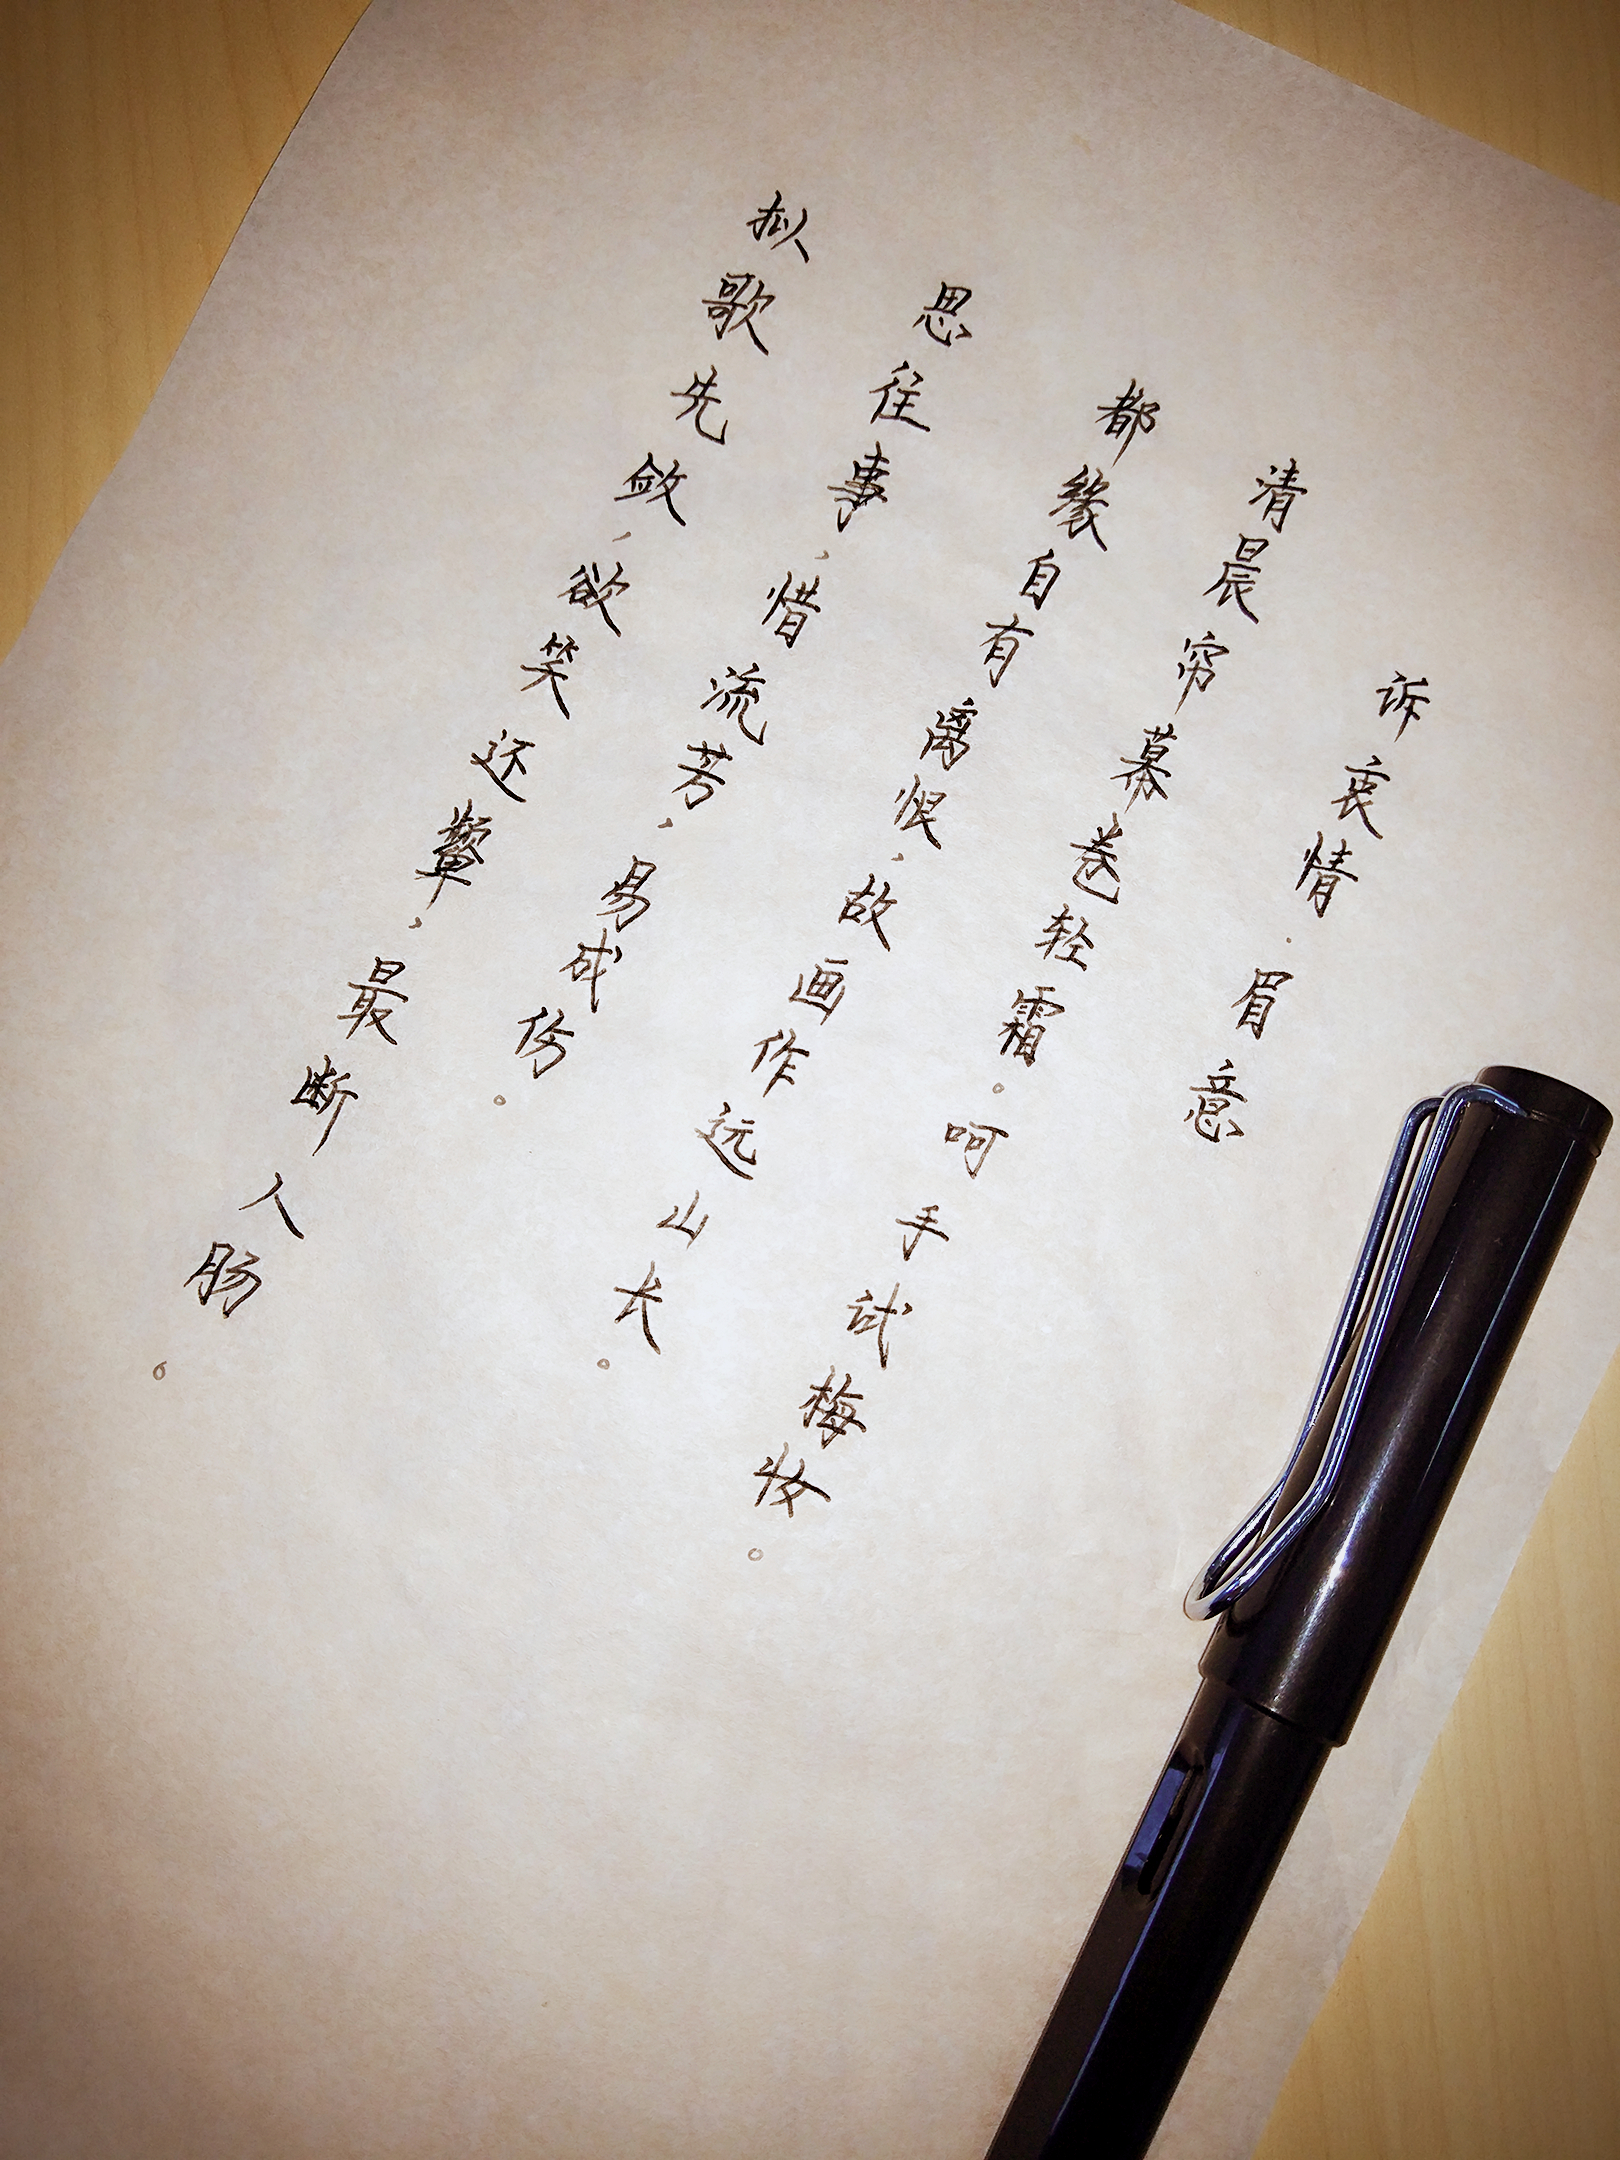 诉衷情·眉意
清晨帘幕卷轻霜。呵手试梅妆。
都缘自有离恨，故画作远山长。
思往事，惜流芳，易成伤。
拟歌先敛，欲笑还颦，最断人肠。